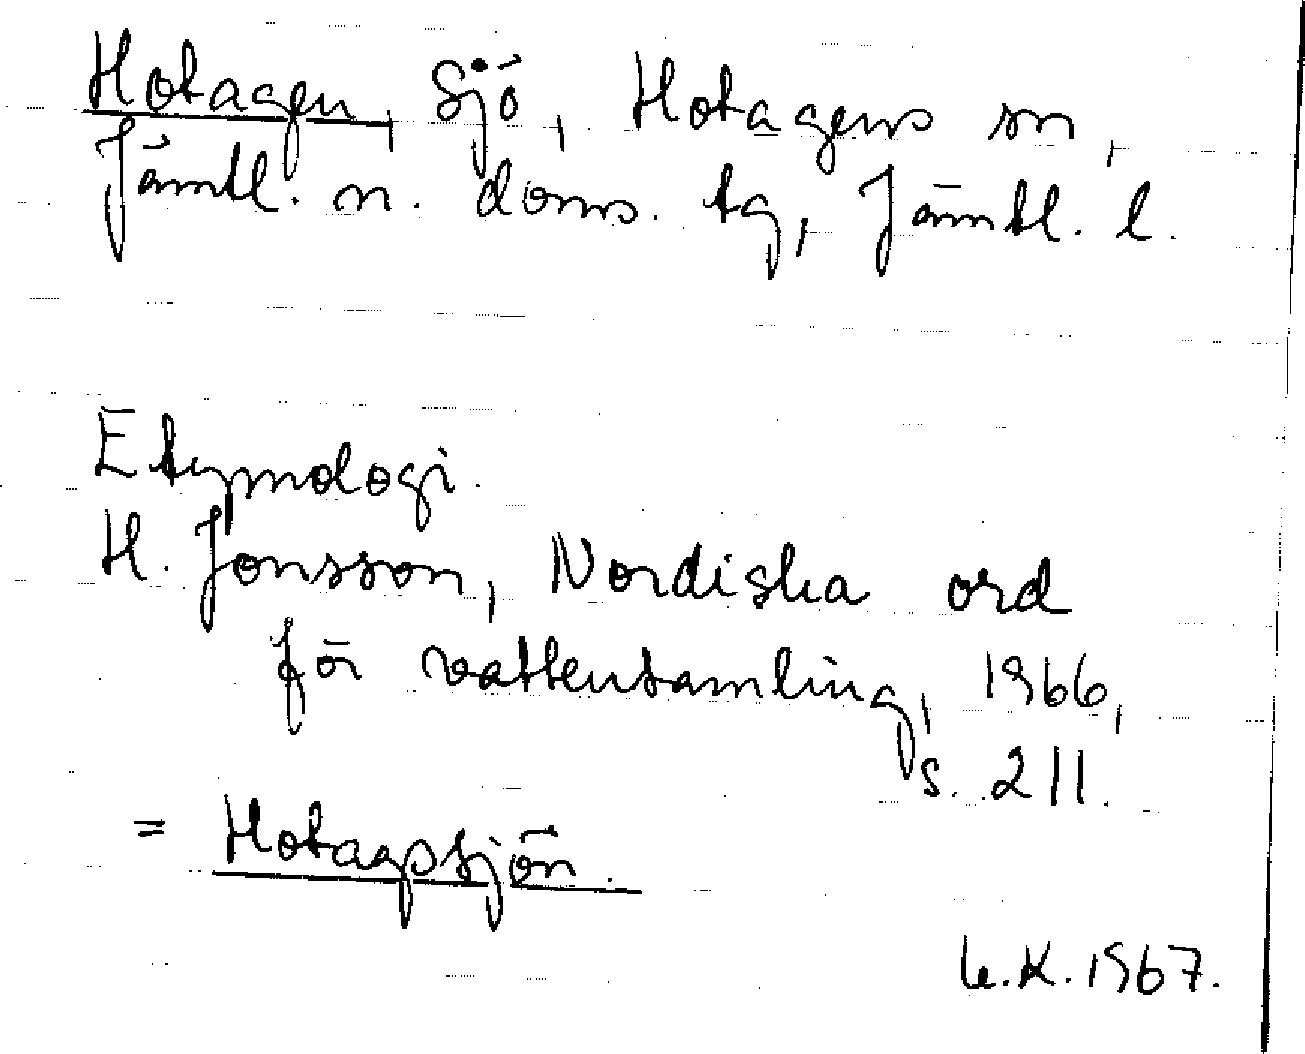 Hotagen, sjö, Hotagens sn,
Jämtl. n. doms. tg, Jämtl. l.
Etymologi.
H. Jonsson, Nordiska ord
för vattensamling, 1966,
s. 211.
= Hotagssjön.
K. 1967.